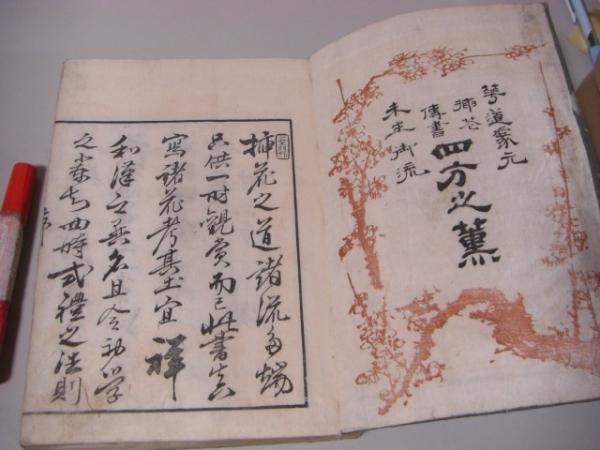 華道家元
挿花
傳書
四方之薫
未生御流
挿花之道諸流多端
只供一時觀賞而已此書
寫諸花考其土宜祥
和漢之異名且令初学
之輩知四時式禮之法則
序